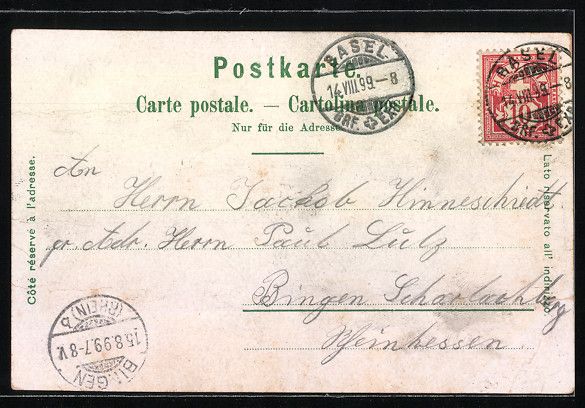 Postkarte.
Carte postale. — Cartolina postale.
Nur für die Adresse
BASEL
14.VIII.99.–8
BRF. EXP.
BASEL
14.VIII.99.–8
BRF. EXP.
10
Côté réservé à l'adresse.
Lato riservato all' indirizzo
An
Herrn Jackob Hinneschiedt
pr. Adr. Herrn Paul Lutz
Bingen Scharlachbg
Rheinhessen
BINGEN
15.8.99.7-8V.
(RHEIN) b